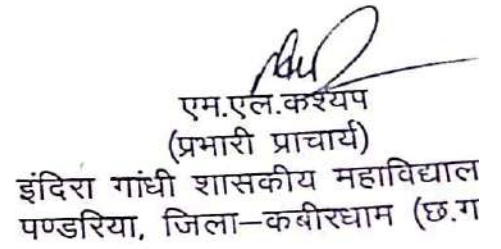 एम.एल.कश्यप
(प्रभारी प्राचार्य)
इंदिरा गांधी शासकीय महाविद्याल
पण्डरिया, जिला–कबीरधाम (छ.ग